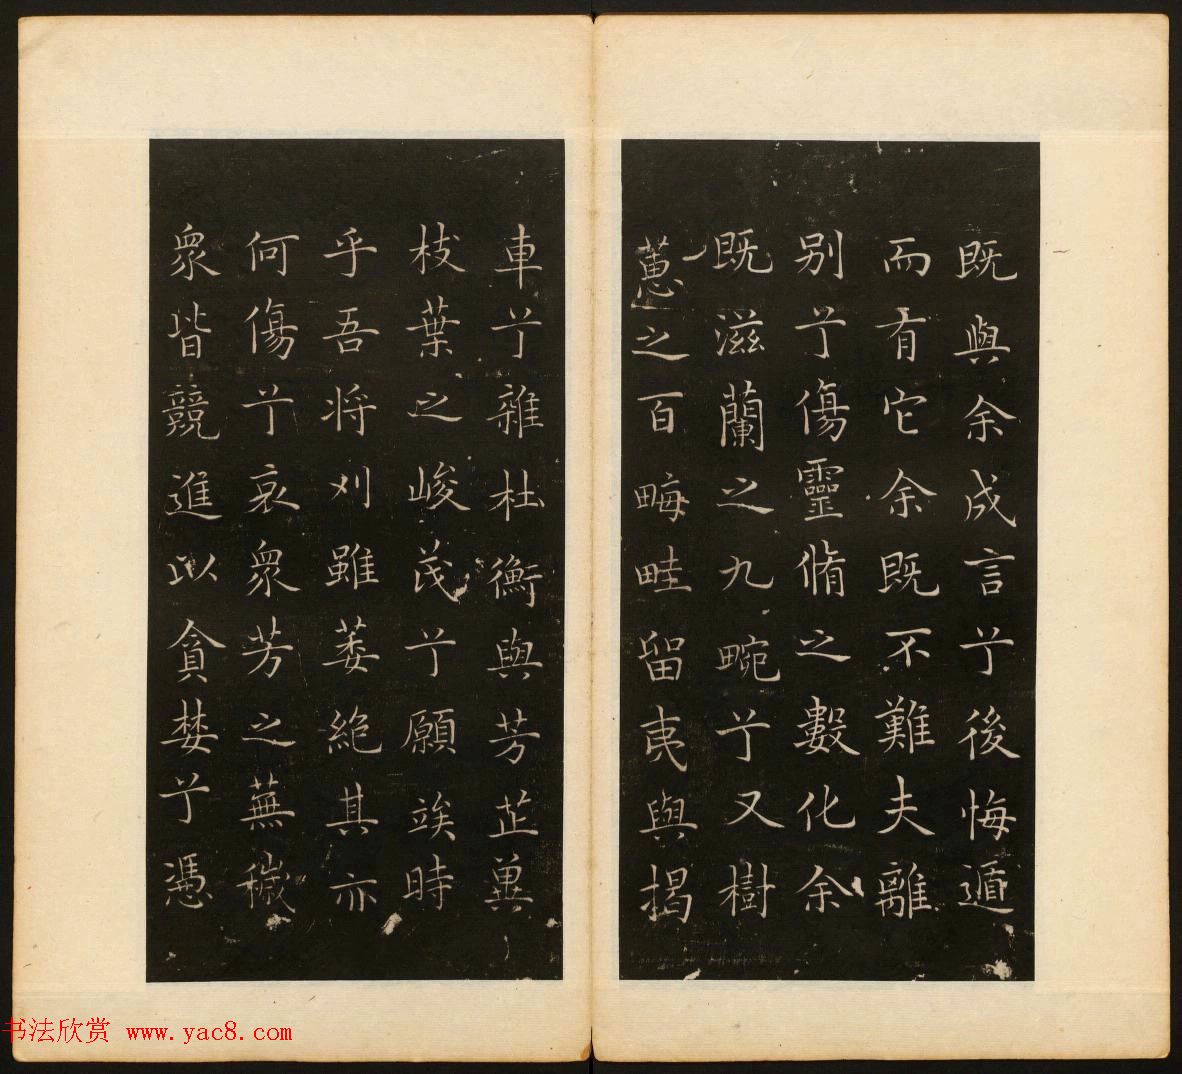 既與余成言兮後悔遁
而有它余既不難夫離
别兮傷靈脩之數化余
既滋蘭之九畹兮又樹
蕙之百畮畦留夷與揭
車兮雜杜衡與芳芷冀
枝葉之峻茂兮願竢時
乎吾將刈雖萎絶其亦
何傷兮哀衆芳之蕪穢
衆皆競進以貪婪兮憑
书法欣赏 www.yac8.com